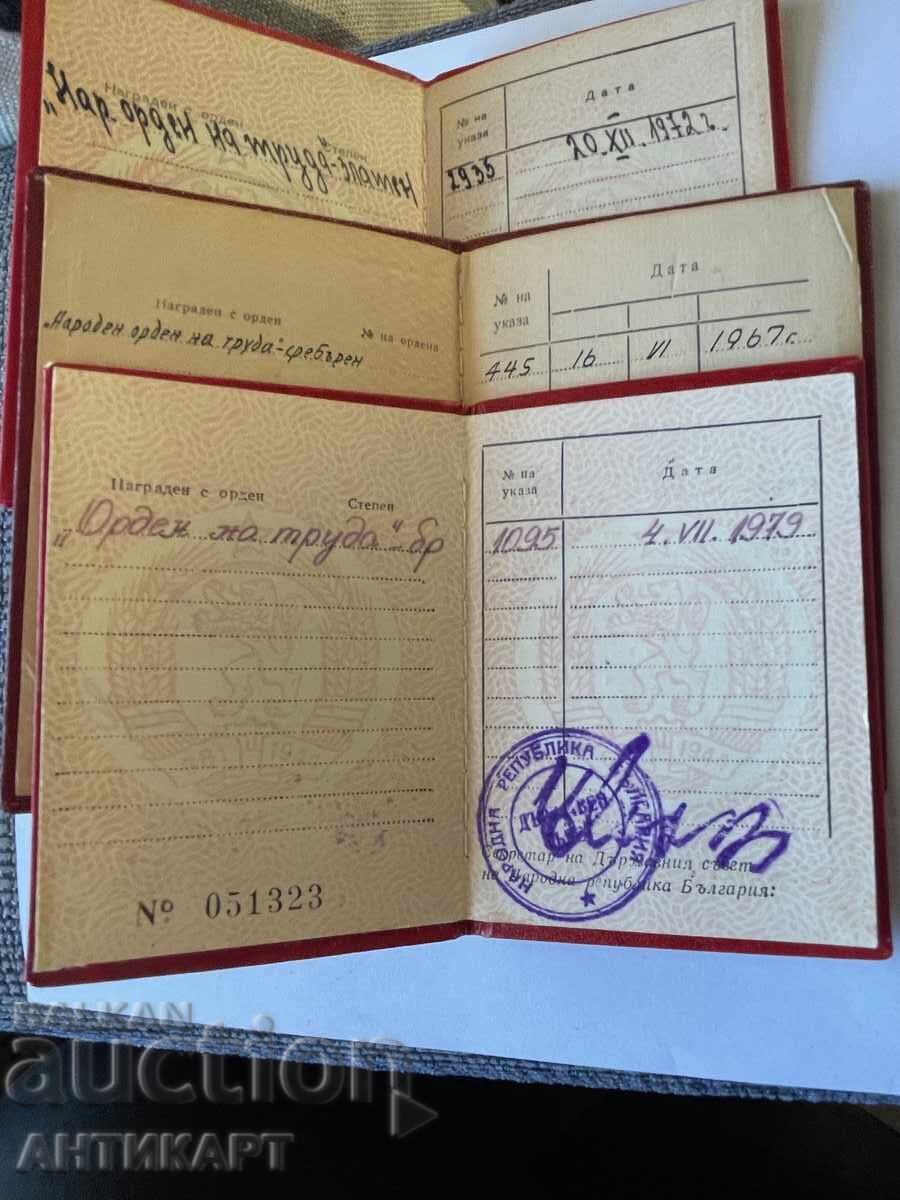 Награден с орден
Степен
„Нар. орден на труда-златен
№ на указа
Дата
2935
20.XII.1972 г.
Награден с орден
№ на ордена
„Народен орден на труда"-сребърен
№ на указа
Дата
445 16 VI 1967 г.
Награден с орден
Степен
„Орден на труда"-бр
№ на указа
Дата
1095
4. VII. 1979
НАРОДНА РЕПУБЛИКА БЪЛГАРИЯ
Секретар на Държавния съвет
на Народна република България:
№ 051323
BALKAN
auction
АНТИКАРТ